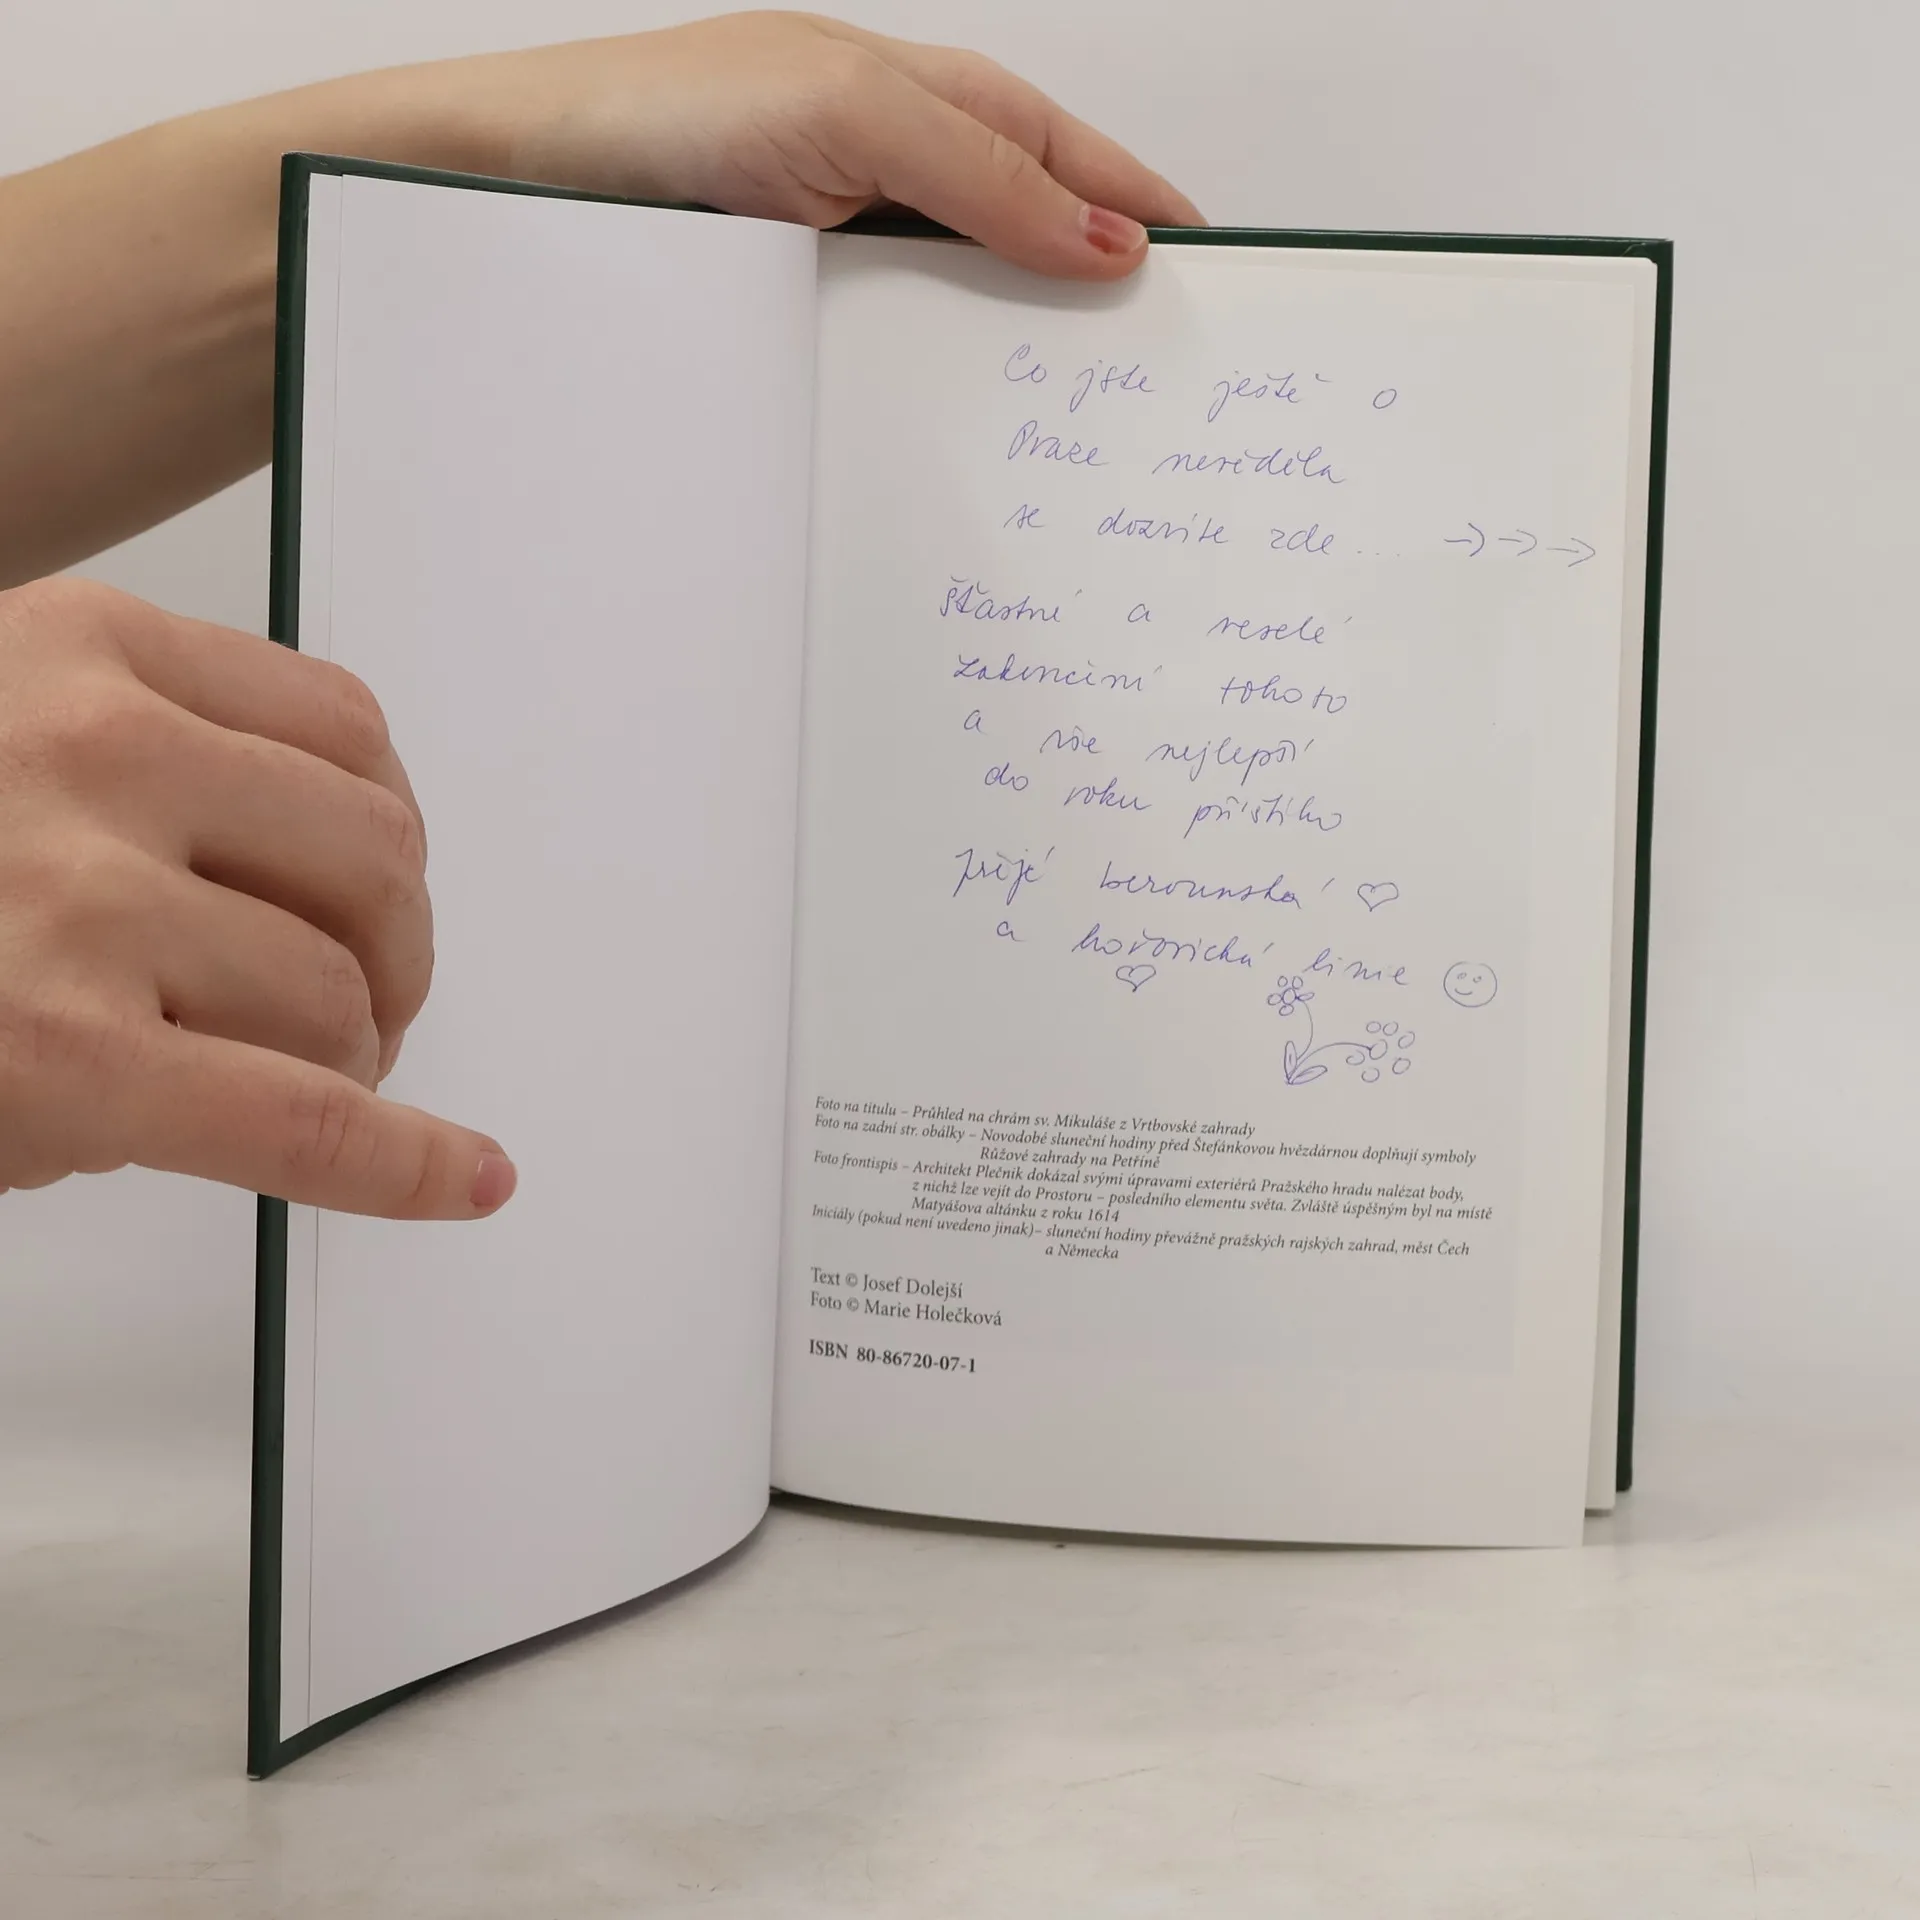 Co jste ještě o
Praze nevěděla
se dozvíte zde... →→→
Šťastné a veselé
zakončení tohoto
a vše nejlepší
do roku příštího
přeje berounská ♡
a hořovická linie ☺
♡
Foto na titulu – Průhled na chrám sv. Mikuláše z Vrtbovské zahrady
Foto na zadní str. obálky – Novodobé sluneční hodiny před Štefánkovou hvězdárnou doplňují symboly
Růžové zahrady na Petříně
Foto frontispis – Architekt Plečnik dokázal svými úpravami exteriérů Pražského hradu nalézat body,
z nichž lze vejít do Prostoru – posledního elementu světa. Zvláště úspěšným byl na místě
Matyášova altánku z roku 1614
Iniciály (pokud není uvedeno jinak)– sluneční hodiny převážně pražských rajských zahrad, měst Čech
a Německa
Text © Josef Dolejší
Foto © Marie Holečková
ISBN 80-86720-07-1